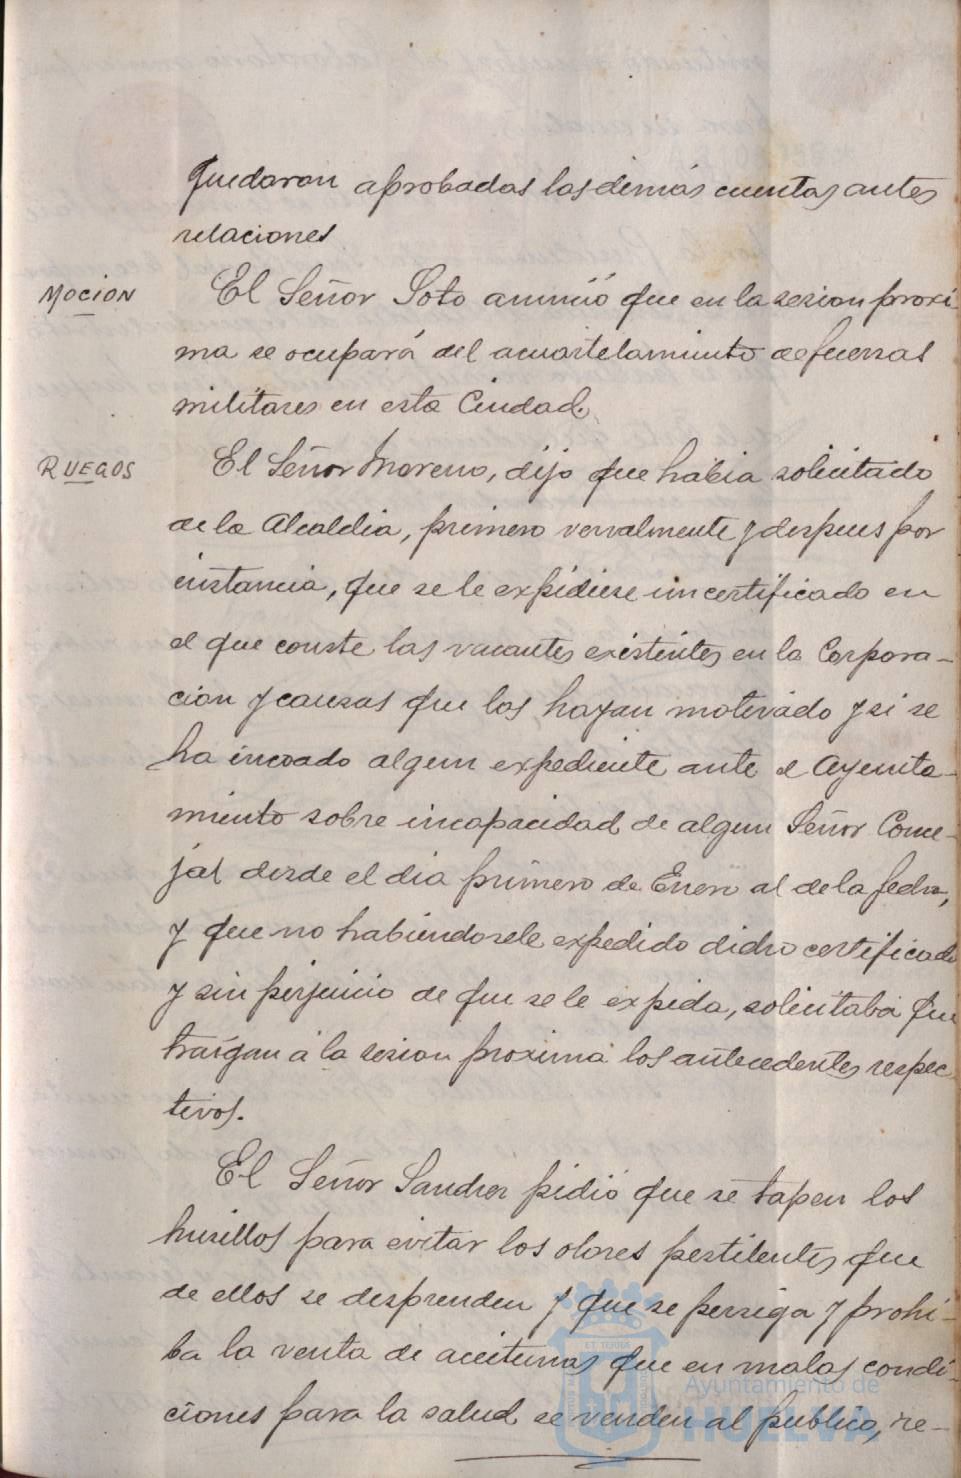 quedaron aprobadas las demás cuentas antes
relaciones
MOCION
El Señor Soto anunció que en la sesion proxi-
ma se ocupará del acuartelamiento de fuerzas
militares en esta Ciudad.
RUEGOS
El Señor Moreno, dijo que habia solicitado
de la Alcaldia, primero vervalmente y despues por
instancia, que se le expidiese un certificado en
el que conste las vacantes existentes en la Corpora-
cion y causas que las hayan motivado y si se
ha incoado algun expediente ante el Ayunta-
miento sobre incapacidad de algun Señor Conce-
jal desde el dia primero de Enero al de la fecha,
y que no habiendosele expedido dicho certificado
y sin perjuicio de que se le expida, solicitaba que
traígan á la sesion proxima los antecedentes respec
tivos.
El Señor Sanchez pidió que se tapen los
husillos para evitar los olores pestilentes que
de ellos se desprenden y que se persiga y prohi-
ba la venta de aceitunas que en malas condi-
ciones para la salud se venden al publico, re-
Ayuntamiento de
HUELVA